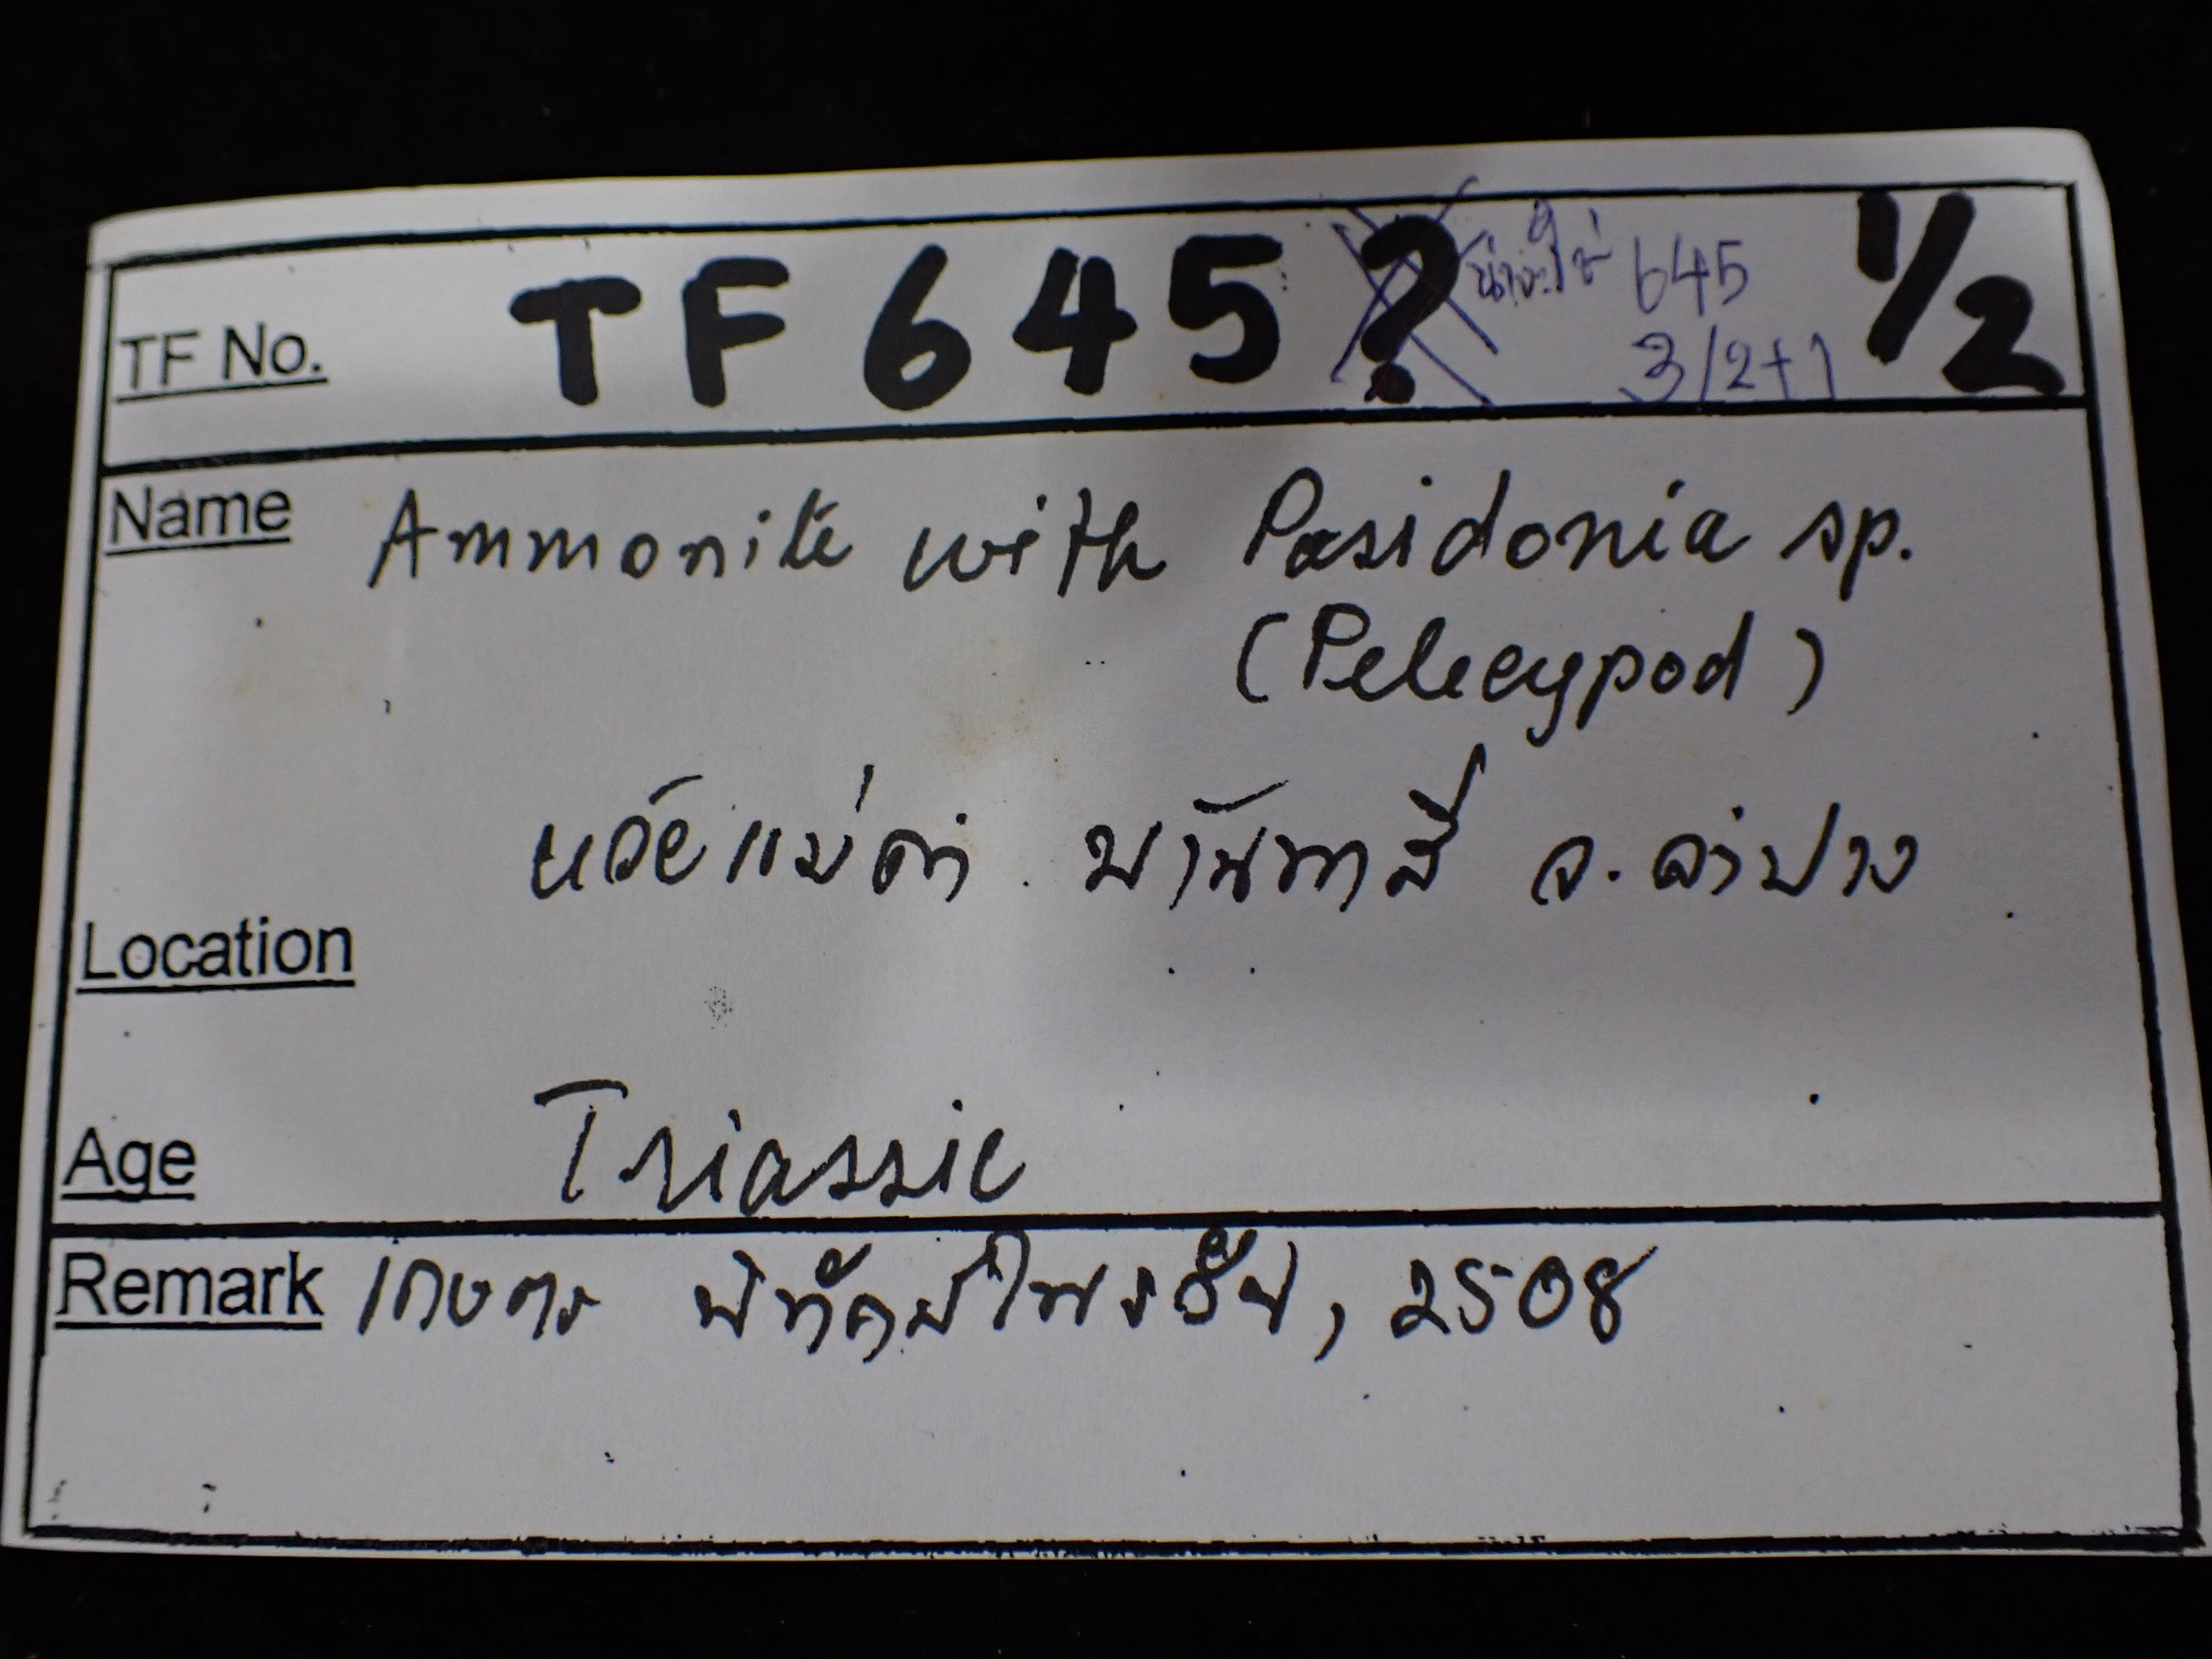 TF No. TF 645 ? น่าจะใช่ 645 1/2
3/2+1
Name Ammonite with Posidonia sp.
(Pelecypod)
ห้วยแม่คำ บ้านทาสี จ.ลำปาง
Location
Age Triassic
Remark เกษตร พิทักษ์ไพรวัน, 2508